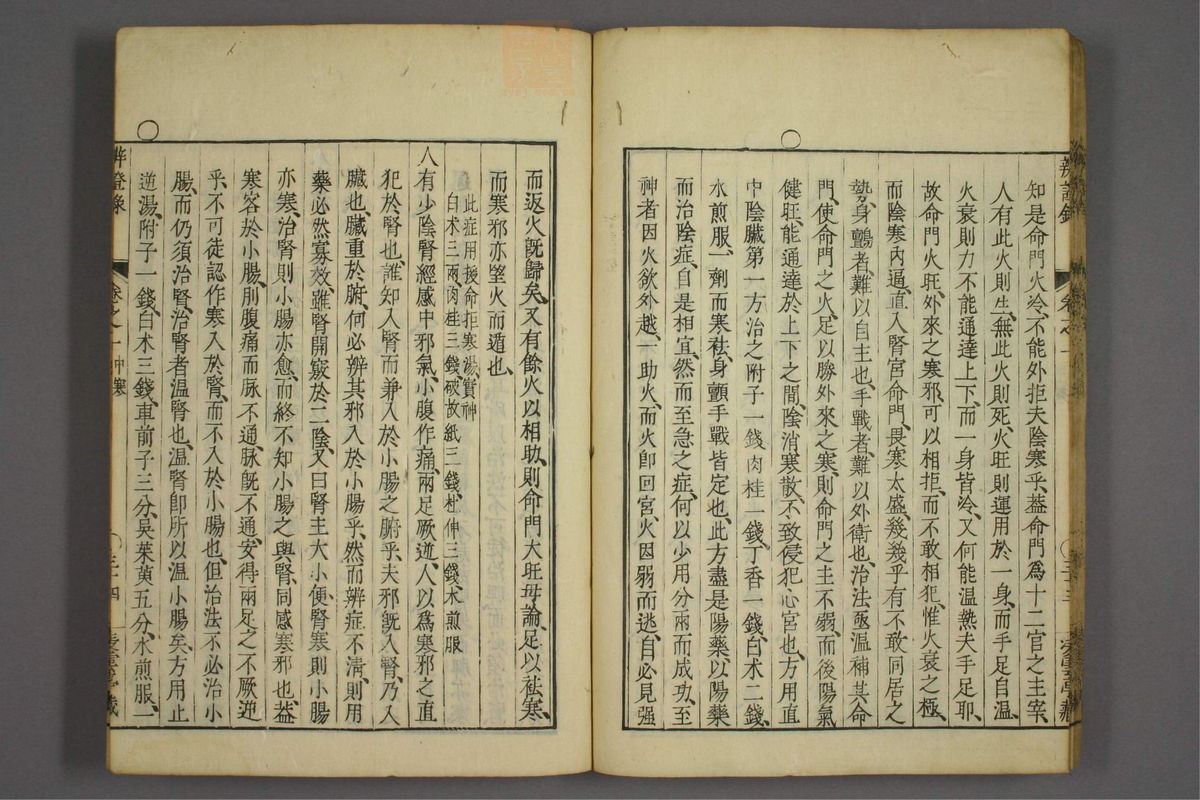 知是命門火冷、不能外拒夫陰寒乎、葢命門爲十二官之主宰、
人有此火則生、無此火則死、火旺則運用於一身、而手足自温、
火衰則力不能通達上下、而一身皆冷、又何能温熱夫手足耶、
故命門火旺、外來之寒邪、可以相拒、而不敢相犯、惟火衰之極、
而陰寒內逼、直入腎宮、命門畏寒太盛、幾幾乎有不敢同居之
勢、身顫者、難以自主也、手戰者、難以外衛也、治法亟温補其命
門、使命門之火、足以勝外來之寒、則命門之主不弱、而後陽氣
健旺、能通達於上下之間、陰消寒散、不致侵犯心宮也、方用直
中陰臟第一方治之、附子一錢、肉桂一錢、丁香一錢、白术二錢、
水煎服、一劑而寒袪、身顫手戰皆定也、此方盡是陽藥、以陽藥
而治陰症、自是相宜、然而至急之症、何以少用分兩而成功、至
神者、因火欲外越、一助火、而火卽回宮、火因弱而逃、自必見强
而返、火旣歸矣、又有餘火以相助、則命門大旺、毋論足以袪寒、
而寒邪亦望火而遁也、
此症用援命拒寒湯、實神
白术三兩、肉桂三錢、破故紙三錢、杜仲三錢、水煎服
人有少陰腎經感中邪氣、小腹作痛、兩足厥逆、人以爲寒邪之直
犯於腎也、誰知入腎而兼入於小腸之腑乎、夫邪旣入腎、乃入
臟也、臟重於腑、何必辨其邪入於小腸乎、然而辨症不淸、則用
藥必然寡效、雖腎開竅於二陰、又曰腎主大小便、腎寒則小腸
亦寒、治腎則小腸亦愈、而終不知小腸之與腎、同感寒邪也、葢
寒客於小腸、則腹痛而脉不通、脉旣不通、安得兩足之不厥逆
乎、不可徒認作寒入於腎、而不入於小腸也、但治法不必治小
腸、而仍須治腎、治腎者温腎也、温腎卽所以温小腸矣、方用止
逆湯、附子一錢、白术三錢、車前子三分、吳茱萸五分、水煎服、一
卷之一 中寒
三十四